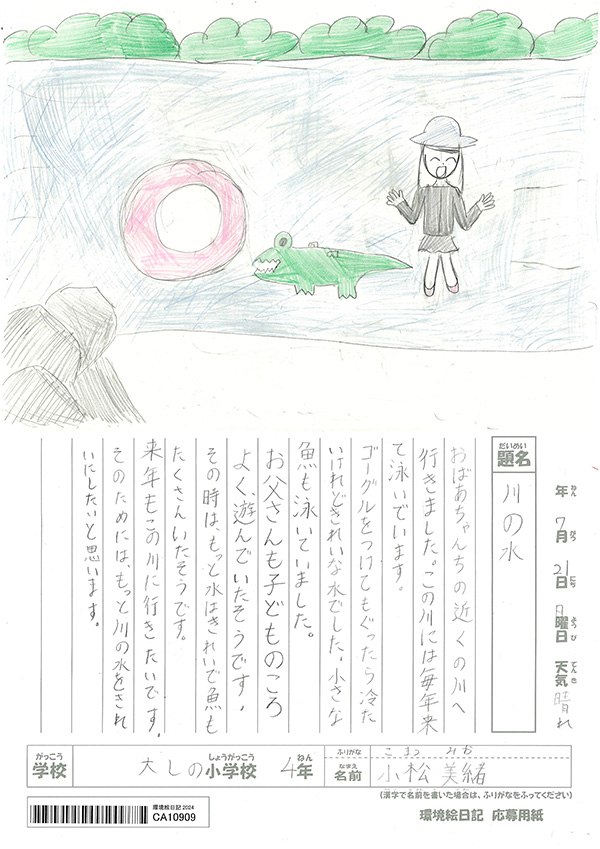 年 7月 21日 日曜日 天気 晴れ
ねん がつ にち ようび てんき
だいめい
題名 川の水
おばあちゃんちの近くの川へ
行きました。この川には毎年来
て泳いでいます。
ゴーグルをつけてもぐったら冷た
いけれどきれいな水でした。小さな
魚も泳いていました。
お父さんも子どものころ
よく遊んでいたそうです。
その時は、もっと水はきれいで魚も
たくさんいたそうです。
来年もこの川に行きたいです。
そのためには、もっと川の水をきれ
いにしたいと思います。
がっこう しょうがっこう ねん ふりがな こまつ みお
学校 大しの小学校 4年 なまえ 名前 小松 美緒
(漢字で名前を書いた場合は、ふりがなをふってください)
環境絵日記 応募用紙
環境絵日記2024
CA10909